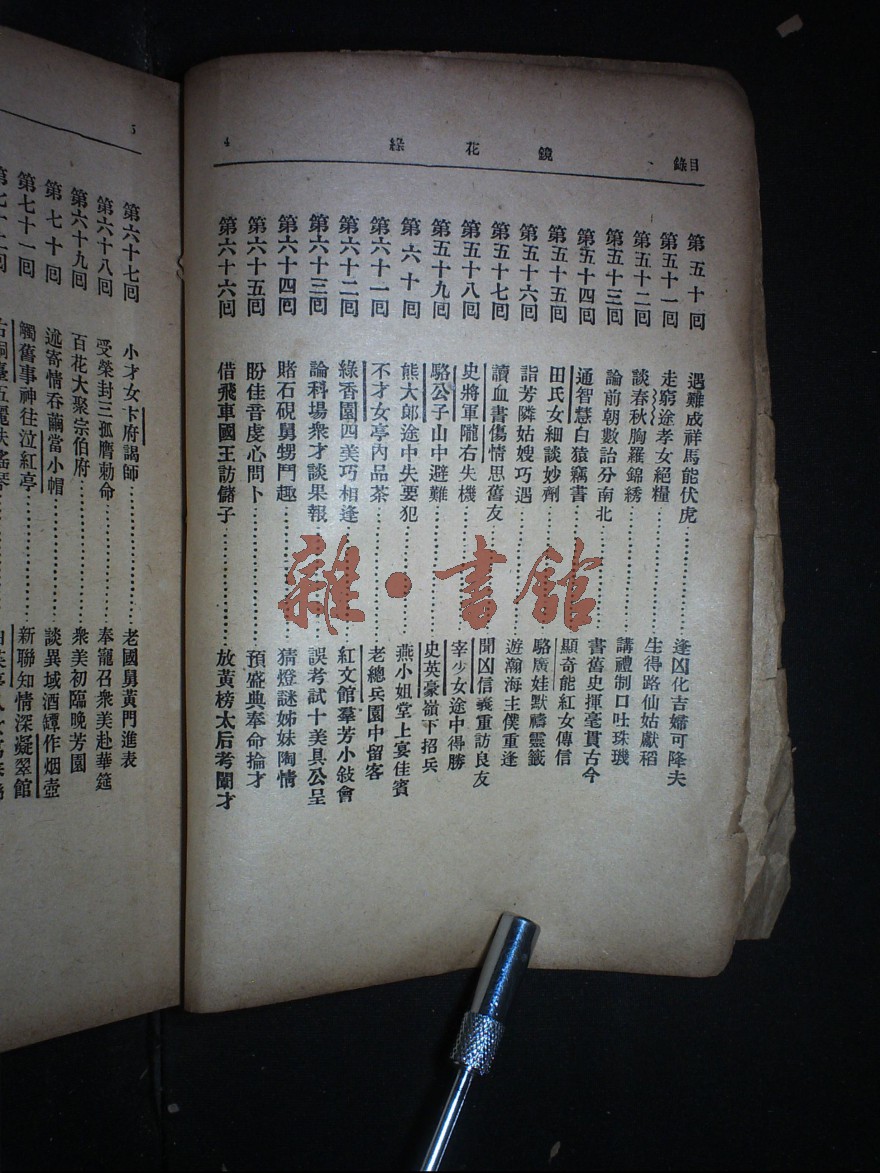 目錄 鏡花緣 4
第五十回 遇難成祥馬能伏虎 逢凶化吉婦可降夫
第五十一回 走窮途孝女絕糧 生得路仙姑獻稻
第五十二回 談春秋胸羅錦綉 講禮制口吐珠璣
第五十三回 論前朝數語分南北 書舊史揮毫貫古今
第五十四回 通智慧白猿竊書 顯奇能紅女傳信
第五十五回 田氏女細談妙劑 駱廣娃默禱靈籤
第五十六回 詣芳隣姑嫂巧遇 遊瀚海主僕重逢
第五十七回 讀血書傷情思舊友 聞凶信義重訪良友
第五十八回 史將軍隴右失機 宰少女途中得勝
第五十九回 駱公子山中避難 史英豪嶺下招兵
第六十回 熊大郎途中失要犯 燕小姐堂上宴佳賓
第六十一回 不才女亭內品茶 老總兵園中留客
第六十二回 綠香園四美巧相逢 紅文館羣芳小敍會
第六十三回 論科場衆才談果報 誤考試十美具公呈
第六十四回 賭石硯舅甥鬥趣 猜燈謎姊妹陶情
第六十五回 盼佳音虔心問卜 預盛典奉命掄才
第六十六回 借飛車國王訪儲子 放黃榜太后考閨才
5
第六十七回 小才女卞府謁師 老國舅黃門進表
第六十八回 受榮封三孤膺勅命 奉寵召衆美赴華筵
第六十九回 百花大聚宗伯府 衆美初臨晚芳園
第七十回 述奇情吞繭當小帽 談異域酒罈作烟壺
第七十一回 觸舊事神往泣紅亭 新聯知情深凝翠館
雜·書館